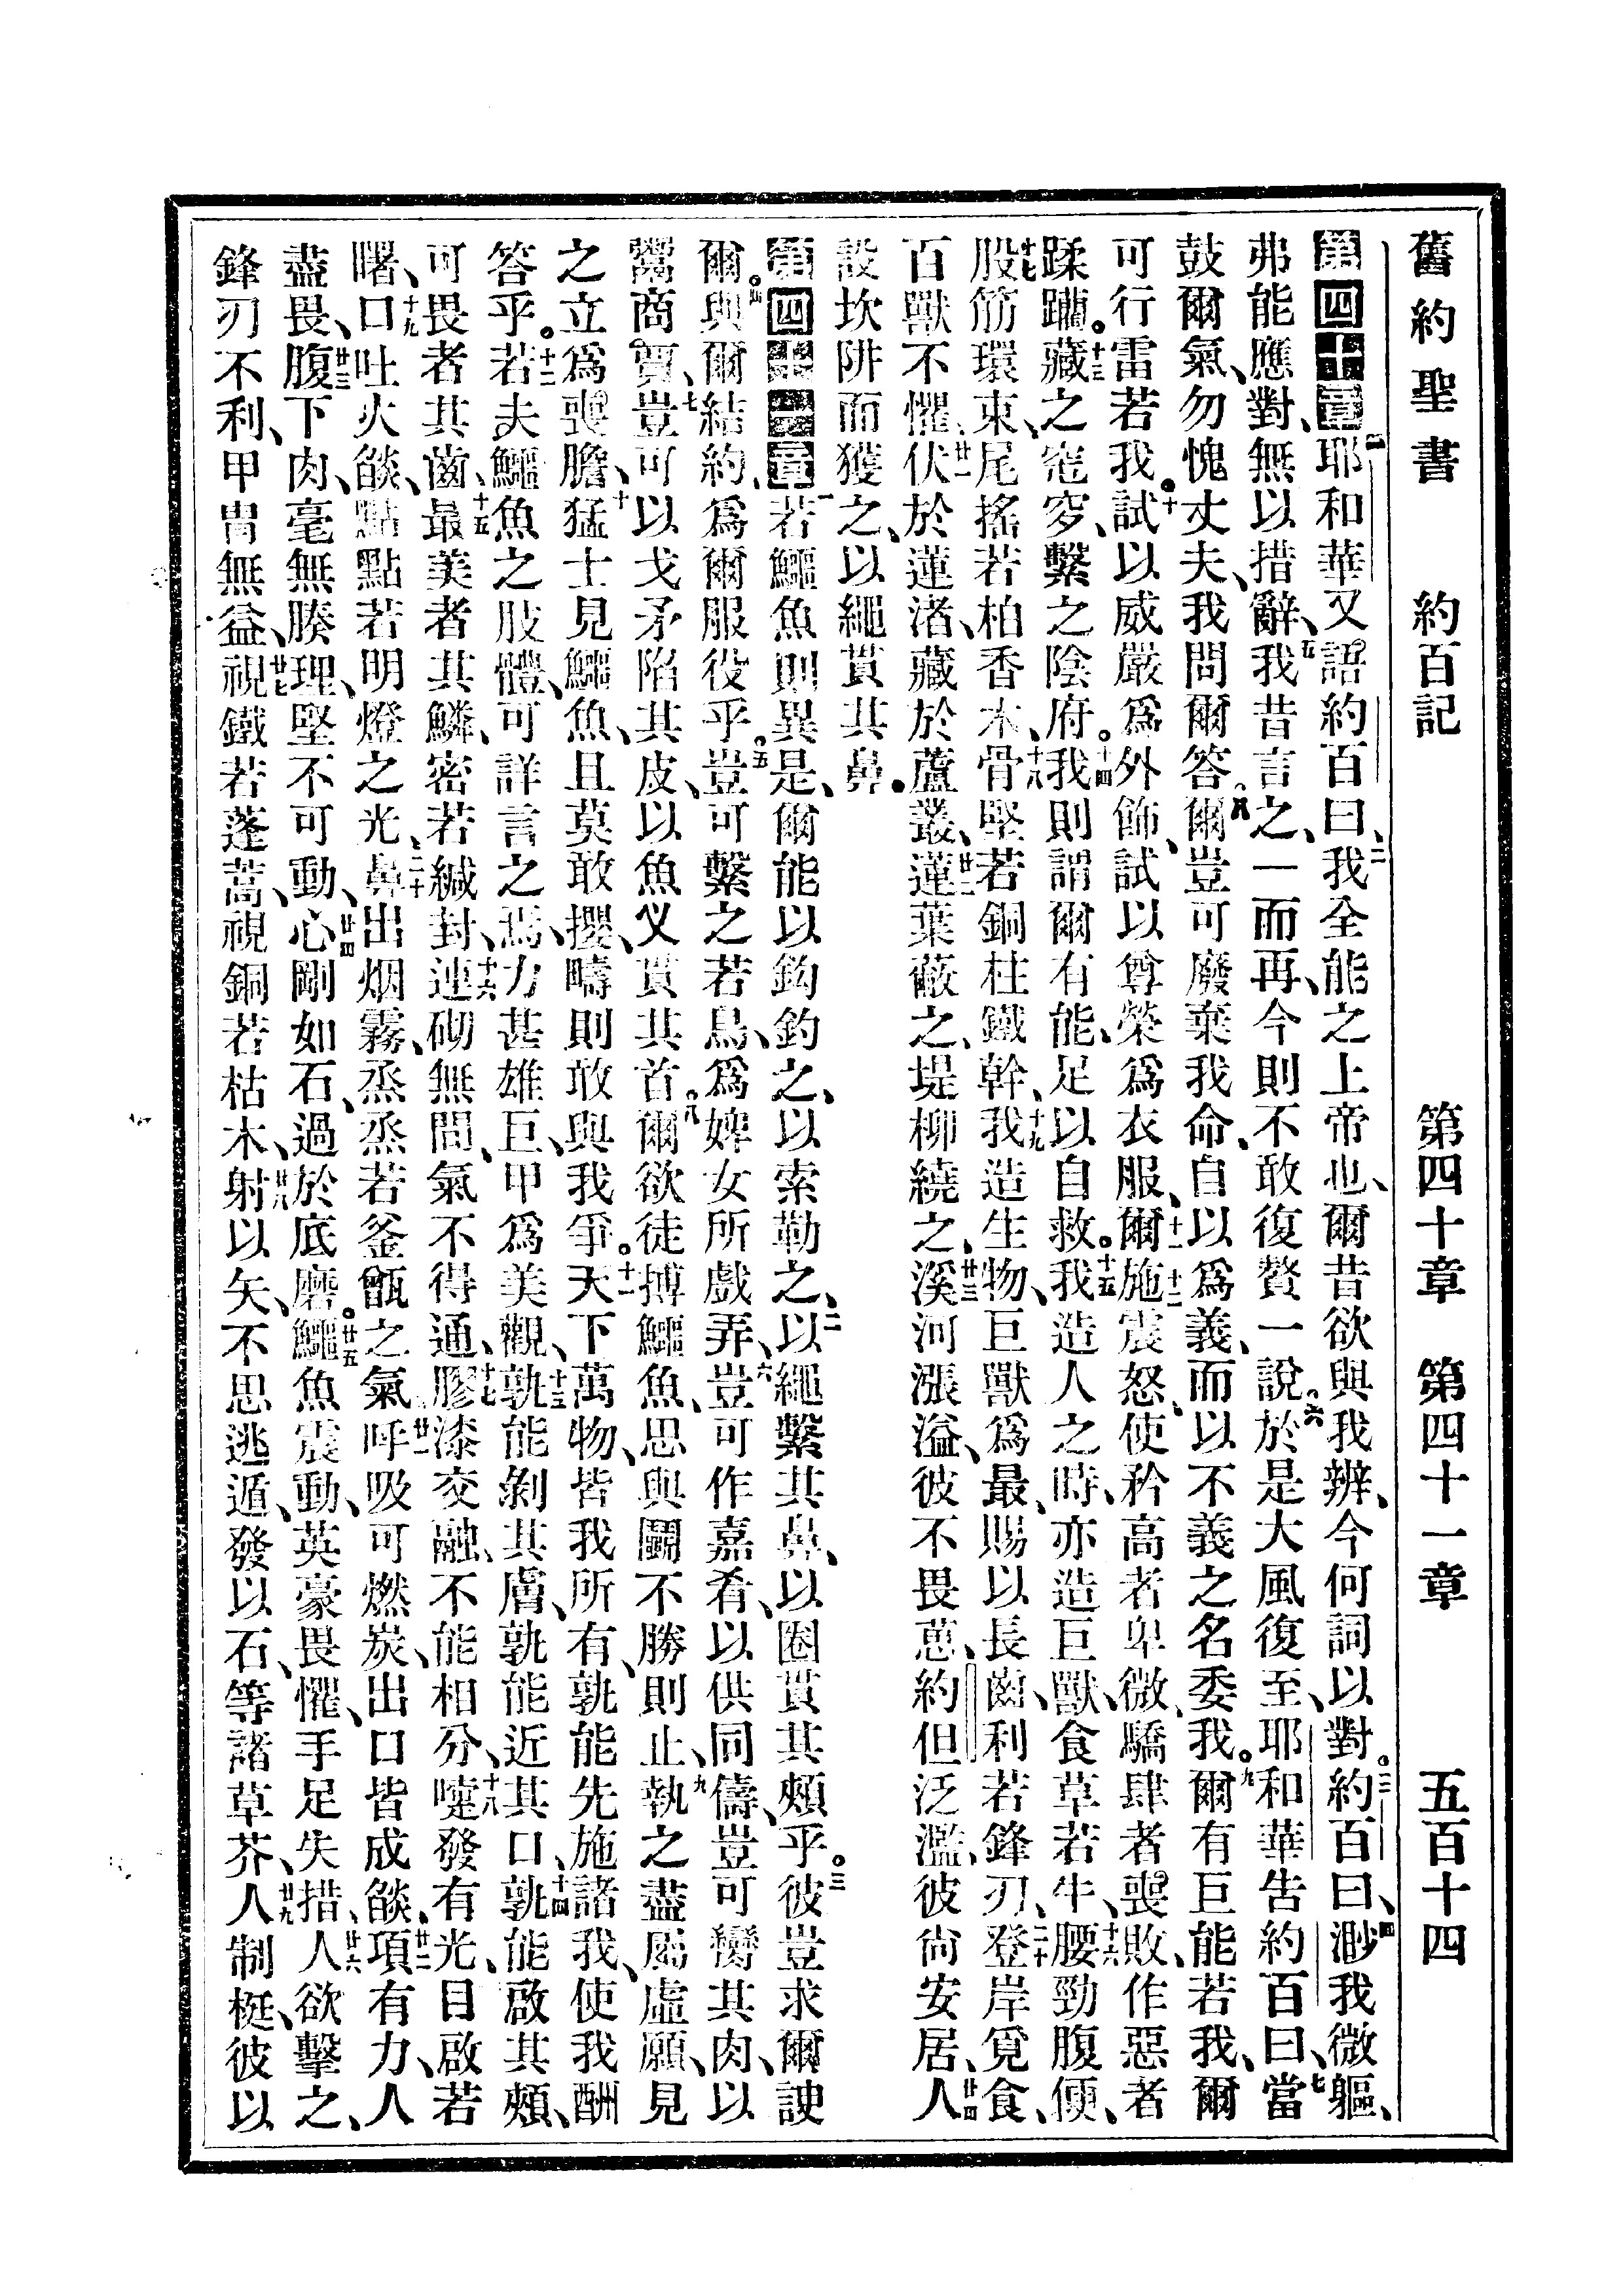 舊約聖書 約百記 第四十章 第四十一章 五百十四
第四十章一耶和華又語約百曰、二我全能之上帝也、爾昔欲與我辨、今何詞以對。三約百曰、四渺我微軀、
弗能應對、無以措辭、五我昔言之、一而再、今則不敢復贅一說。六於是大風復至、耶和華告約百曰、七當
鼓爾氣、勿愧丈夫、我問爾答。八爾豈可廢棄我命、自以爲義、而以不義之名委我。九爾有巨能若我、爾
可行雷若我。十試以威嚴爲外飾、試以尊榮爲衣服、十一爾施震怒、使矜高者卑微、十二驕肆者喪敗、作惡者
蹂躪。十三藏之窀穸、繫之陰府。十四我則謂爾有能、足以自救。十五我造人之時、亦造巨獸、食草若牛、十六腰勁腹便、
十七股筋環束、尾搖若柏香木、十八骨堅若銅柱鐵幹、十九我造生物、巨獸爲最、賜以長齒、利若鋒刃、二十登岸覓食、
百獸不懼、廿一伏於蓮渚、藏於蘆叢、廿二蓮葉蔽之、堤柳繞之、廿三溪河漲溢、彼不畏葸、約但泛濫、彼尙安居、廿四人
設坎阱而獲之、以繩貫其鼻。
第四十一章一若鱷魚則異是、爾能以鈎釣之、以索勒之、二以繩繫其鼻、以圈貫其頰乎。三彼豈求爾諛
爾。四與爾結約、爲爾服役乎。五豈可繫之若鳥、爲婢女所戲弄、六豈可作嘉肴、以供同儔、豈可臠其肉、以
鬻商賈、七豈可以戈矛陷其皮、以魚义貫其首。八爾欲徒搏鱷魚、思與鬭不勝則止、九執之盡屬虛願、見
之立爲喪膽、十猛士見鱷魚、且莫敢攖、疇則敢與我爭。十一天下萬物、皆我所有、孰能先施諸我、使我酬
答乎。十二若夫鱷魚之肢體、可詳言之焉、力甚雄巨、甲爲美觀、十三孰能剝其膚、孰能近其口、十四孰能啟其頰、
可畏者其齒、十五最美者其鱗、密若緘封、十六連砌無間、氣不得通、十七膠漆交融、不能相分、十八嚏發有光、目啟若
曙、十九口吐火燄、點點若明燈之光、二十鼻出烟霧、烝烝若釜甑之氣、廿一呼吸可燃炭、出口皆成燄、廿二項有力、人
盡畏、廿三腹下肉、毫無腠理、堅不可動、廿四心剛如石、過於底磨。廿五鱷魚震動、英豪畏懼、手足失措、廿六人欲擊之、
鋒刃不利、甲冑無益、廿七視鐵若蓬蒿、視銅若枯木、廿八射以矢、不思逃遁、發以石、等諸草芥、廿九人制梃、彼以